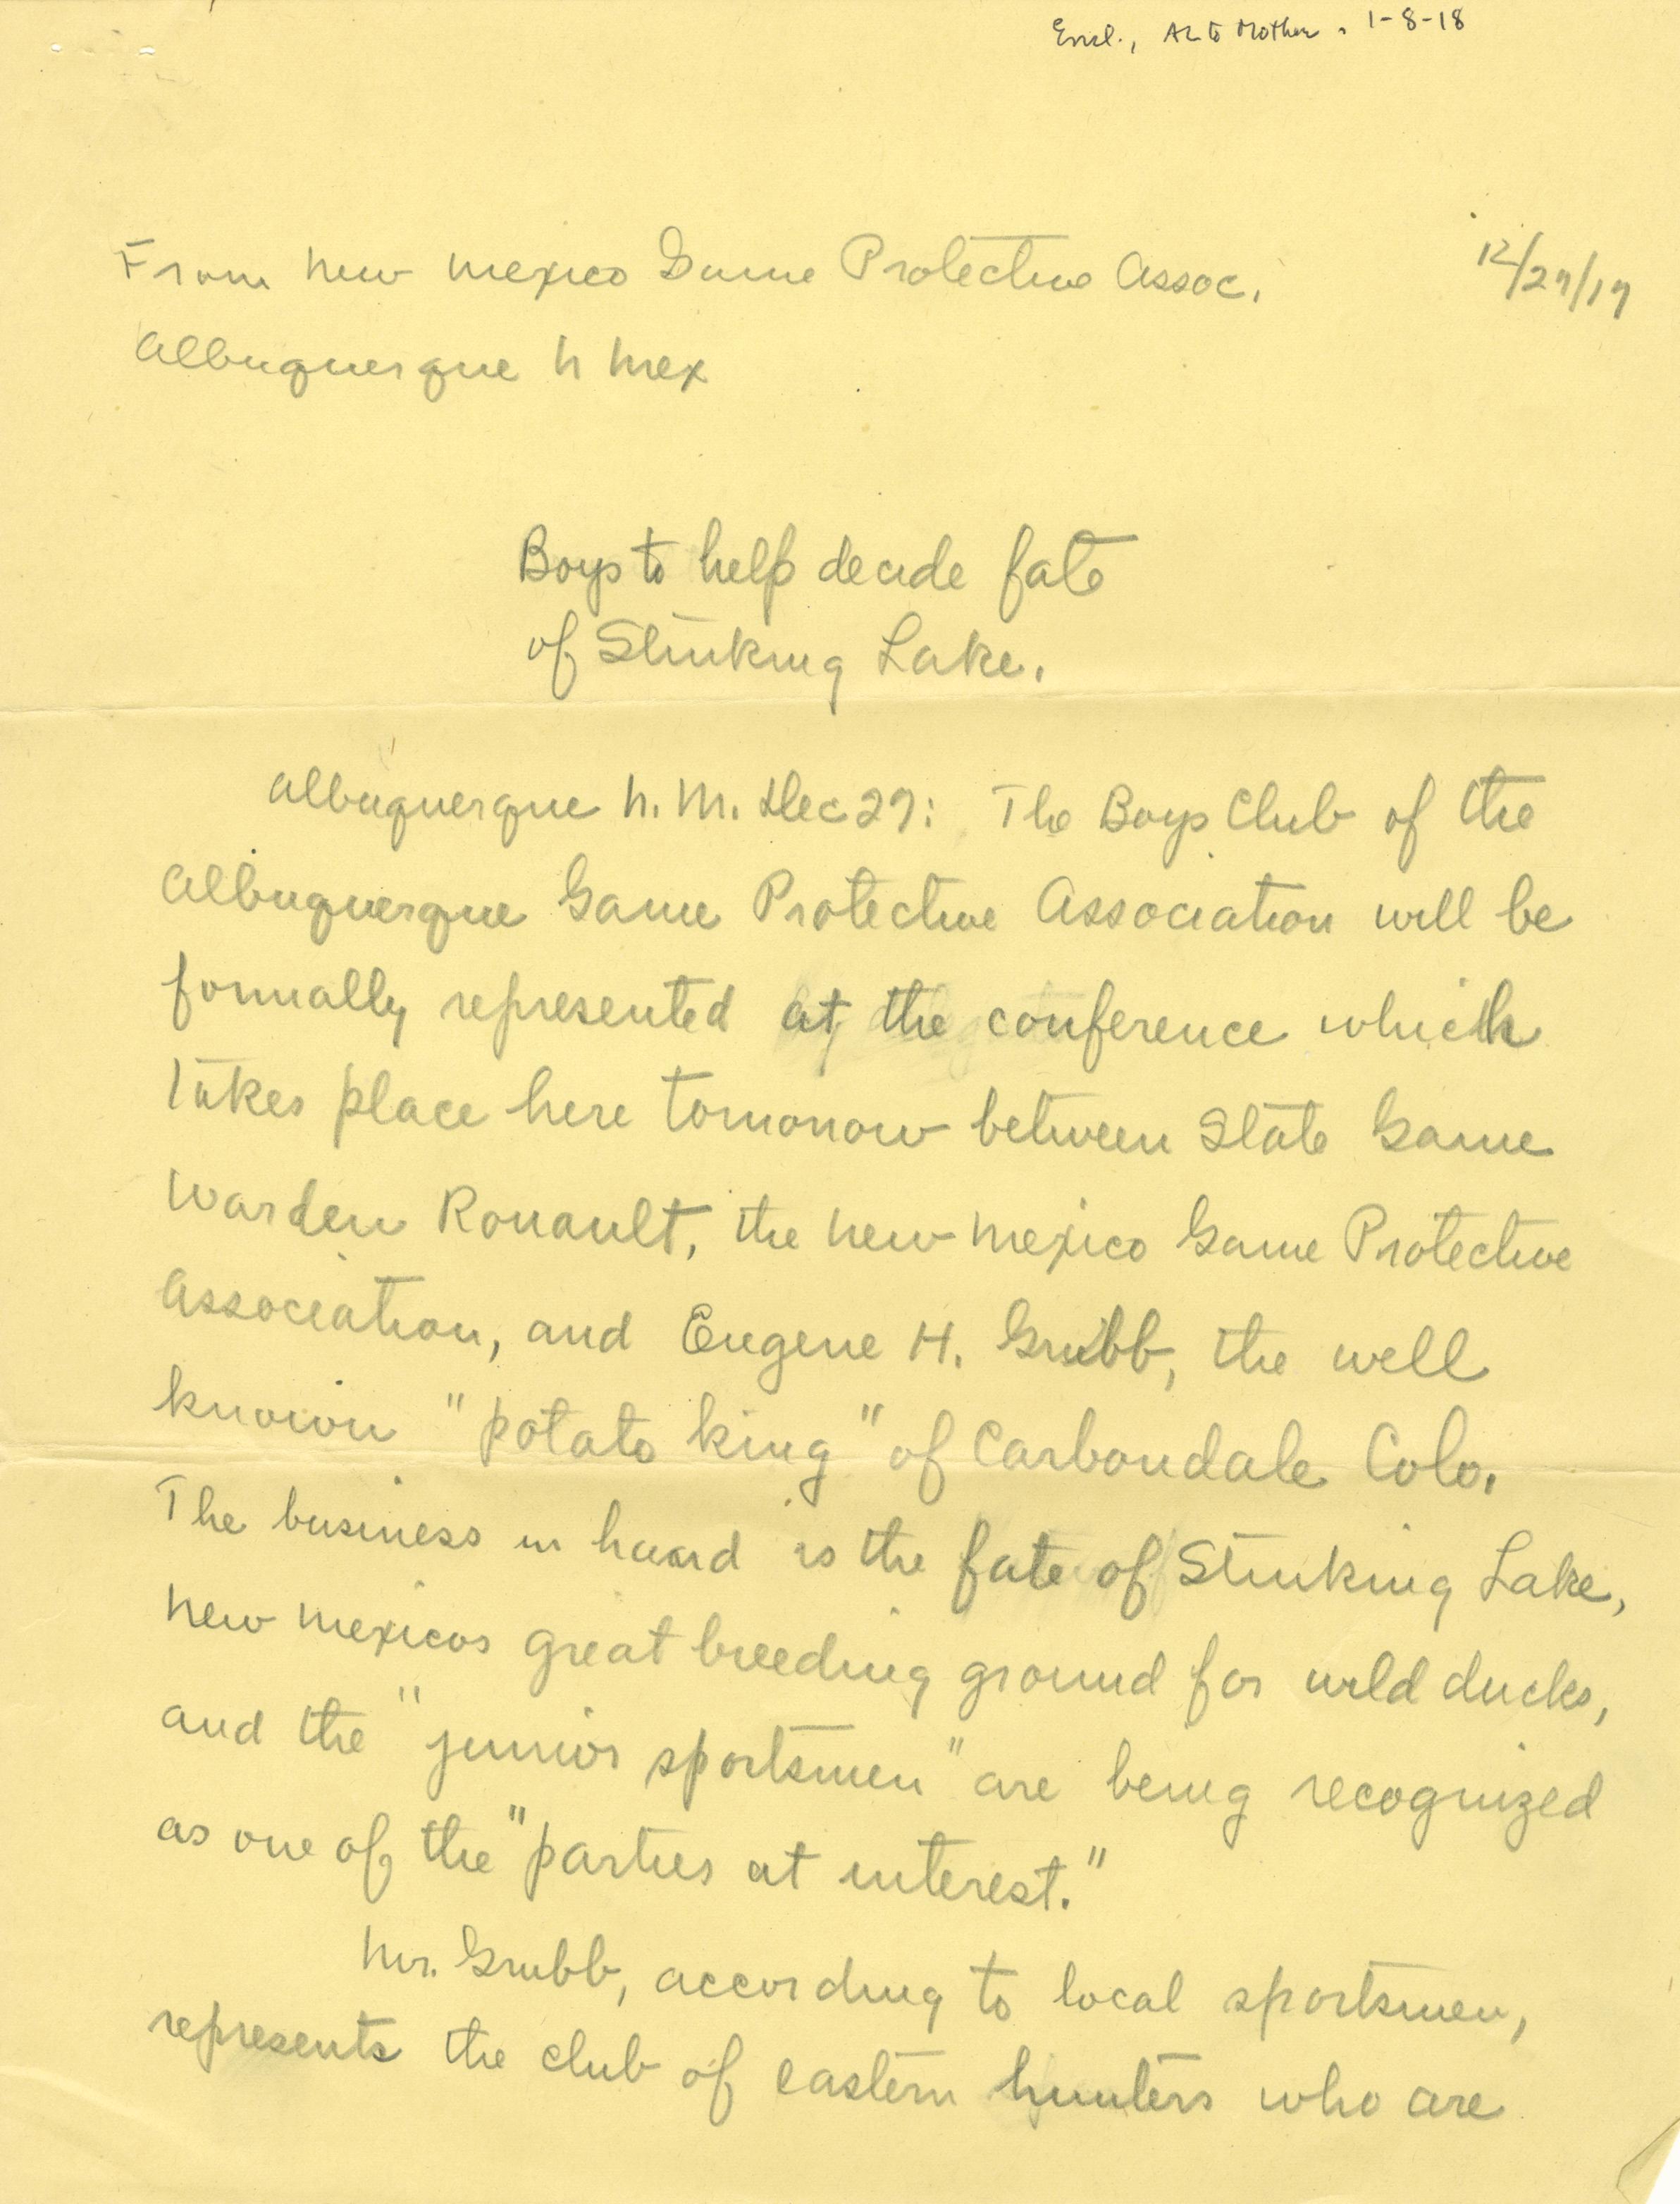 Encl., AL to Mother. 1-8-18
From New Mexico Game Protective Assoc. 12/27/17
Albuquerque N Mex
Boys to help decide fate
of Stinking Lake.
Albuquerque N. M. Dec 27: The Boys Club of the
Albuquerque Game Protective Association will be
formally represented at the conference which
takes place here tomorrow between State Game
Warden Rouault, the New Mexico Game Protective
Association, and Eugene H. Grubb, the well
known "potato king" of Carbondale Colo.
The business in hand is the fate of Stinking Lake,
New Mexicos great breeding ground for wild ducks,
and the "junior sportsmen" are being recognized
as one of the "parties at interest."
Mr. Grubb, according to local sportsmen,
represents the club of eastern hunters who are